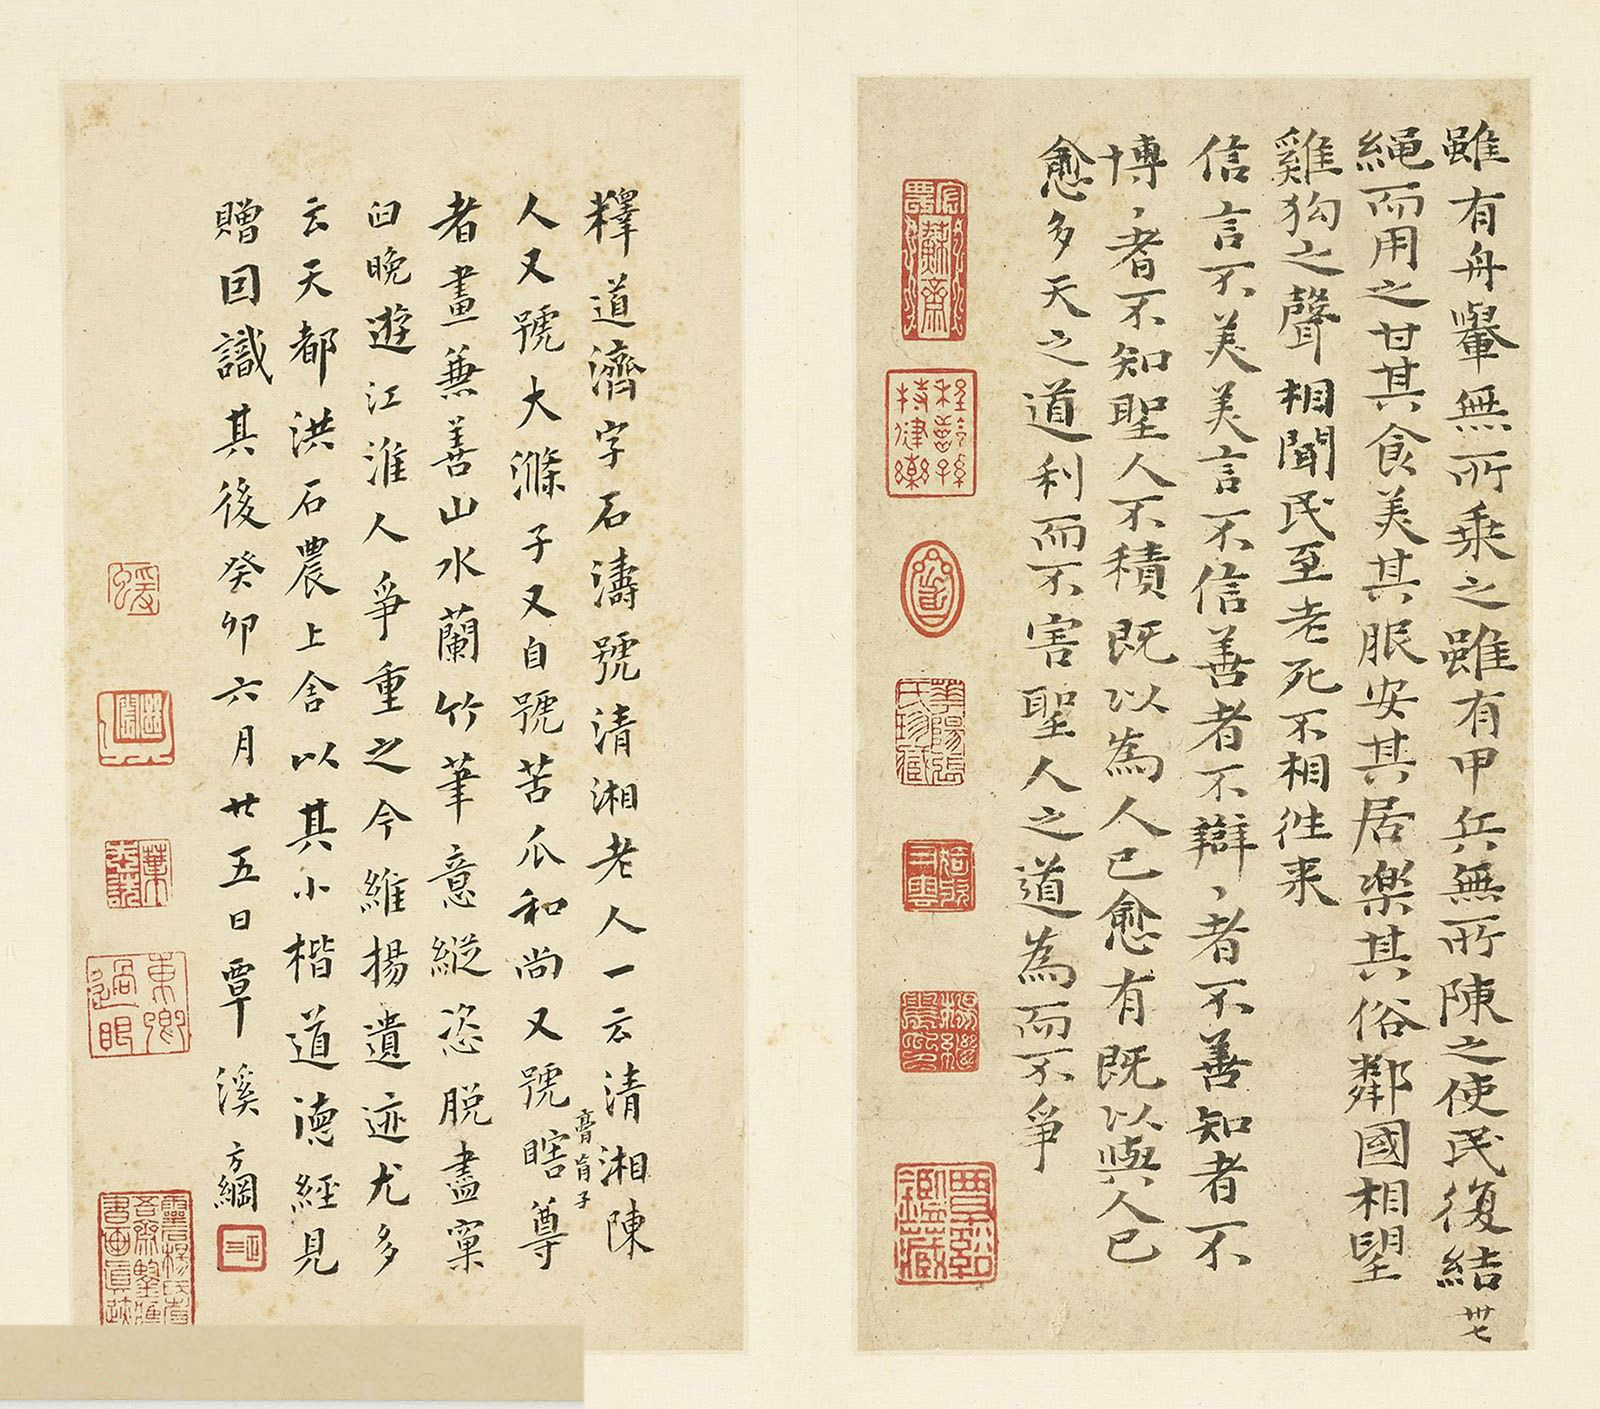 雖有舟轝無所乗之雖有甲兵無所陳之使民復結
卅七
繩而用之甘其食美其服安其居楽其俗鄰國相望
雞狗之聲相聞民至老死不相徃来
信言不美美言不信善者不辯、者不善知者不
博、者不知聖人不積既以為人已愈有既以與人已
愈多天之道利而不害聖人之道為而不爭
蘇齋
華陽張氏珍藏
釋道濟字石濤號清湘老人一云清湘陳
人又號大滌子又自號苦瓜和尚又號瞎尊
膏肓子
者畫兼善山水蘭竹筆意縱恣脱盡窠
臼晚遊江淮人爭重之今維揚遺迹尤多
云天都洪石農上舍以其小楷道德經見
贈回識其後癸卯六月廿五日覃
溪方綱
東卿過眼